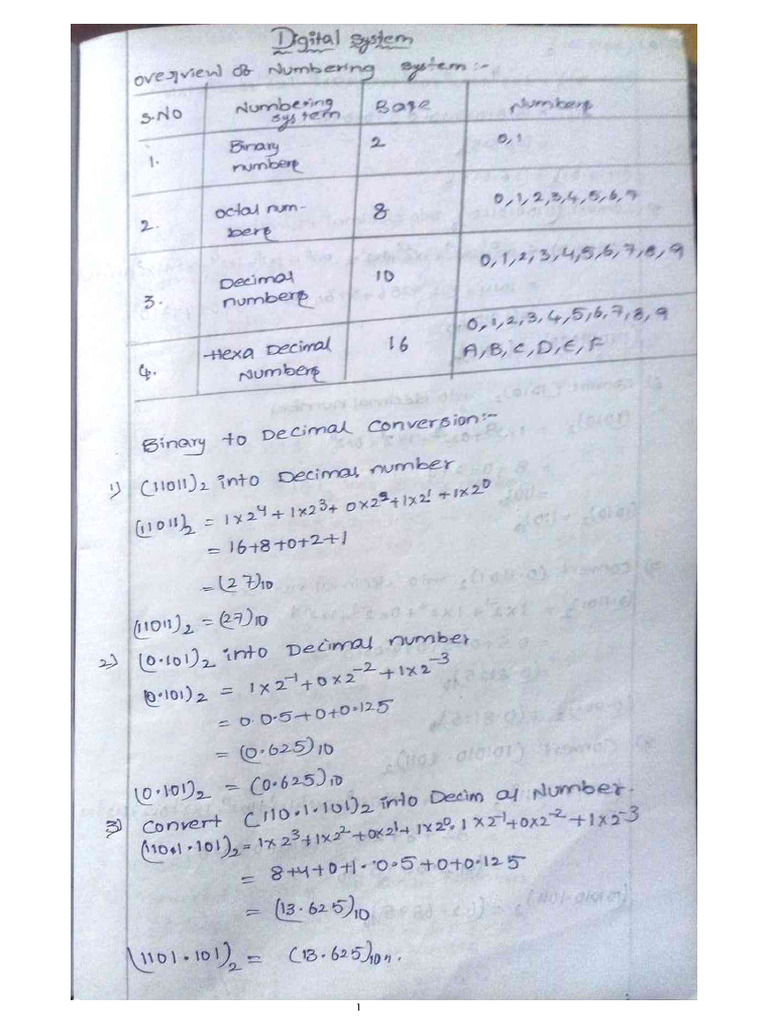 Digital System
Overview of Numbering System:-
S.NO Numbering System Base Numbers
1. Binary numbers 2 0,1
2. Octal num-bers 8 0,1,2,3,4,5,6,7
3. Decimal numbers 10 0,1,2,3,4,5,6,7,8,9
4. Hexa Decimal Numbers 16 0,1,2,3,4,5,6,7,8,9 A,B,C,D,E,F
Binary to Decimal Conversion:-
1) (11011)2 into Decimal number
(11011)2 = 1×2^4 + 1×2^3 + 0×2^2 + 1×2^1 + 1×2^0
= 16+8+0+2+1
= (27)10
(11011)2 = (27)10
2) (0.101)2 into Decimal number
(0.101)2 = 1×2^-1 + 0×2^-2 + 1×2^-3
= 0.0.5+0+0.125
= (0.625)10
(0.101)2 = (0.625)10
3) Convert (110.1.101)2 into Decimal Number.
(1101.101)2 = 1×2^3 + 1×2^2 + 0×2^1 + 1×2^0. 1×2^-1 + 0×2^-2 + 1×2^-3
= 8+4+0+1.0.5+0+0.125
= (13.625)10
(1101.101)2 = (13.625)10//.
1